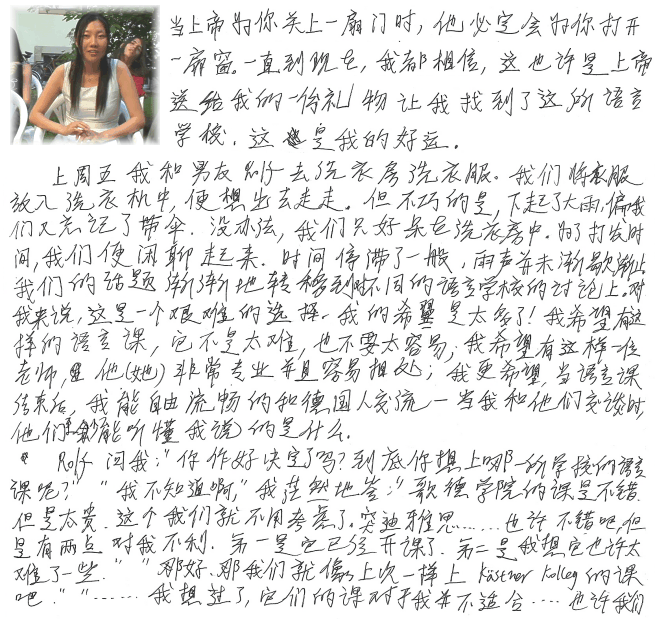 当上帝为你关上一扇门时，他必定会为你打开
一扇窗。一直到现在，我都相信，这也许是上帝
送给我的一份礼物让我找到了这所语言
学校．这是我的好运．
上周五我和男友Rolf去洗衣房洗衣服．我们将衣服
放入洗衣机中，便想出去走走．但不巧的是，下起了大雨，偏我
们又忘记了带伞．没办法，我们只好呆在洗衣房中．为了打发时
间，我们便闲聊起来．时间停滞了一般，雨声并未渐歇渐止
我们的话题渐渐地转移到对不同的语言学校的讨论上．对
我来说，这是一个艰难的选择．我的希望是太多了！我希望有这
样的语言课，它不是太难，也不要太容易；我希望有这样一位
老师，他(她)非常专业并且容易相处；我更希望，当语言课
结束后，我能自由流畅的和德国人交流－当我和他们交谈时，
他们至少能听懂我说的是什么．
Rolf 问我："你作好决定了吗？到底你想上哪一所学校的语言
课呢？" "我不知道啊，"我茫然地答："歌德学院的课是不错
但是太贵．这个我们就不用考虑了．突迪雅思……也许不错吧，但
是有两点对我不利．第一是它已经开课了．第二是我想它也许太
难了一些．" "那好．那我们就像上次一样上 Kästner Kolleg 的课
吧．" "……我想过了，它们的课对于我并不适合…．也许我们